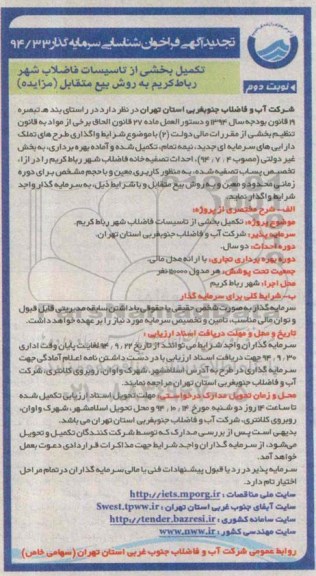 تجدیدآگهی فراخوان شناسایی سرمایه گذار ۹۴/۳۳
تکمیل بخشی از تاسیسات فاضلاب شهر
رباط کریم به روش بیع متقابل (مزایده)
نوبت دوم
شرکت آب و فاضلاب جنوبغربی استان تهران در نظر دارد در راستای بند هـ تبصره
۱۹ قانون بودجه سال ۱۳۹۴ و دستور العمل ماده ۲۷ قانون الحاق برخی از مواد به قانون
تنظیم بخشی از مقررات مالی دولت (۲) با موضوع شرایط واگذاری طرح های تملک
دارایی های سرمایه ای جدید، نیمه تمام، تکمیل شده و آماده بهره برداری، به بخش
غیر دولتی (مصوب ۹۴/۰۷/۰۴)، احداث تصفیه خانه فاضلاب شهر رباط کریم را در ازاء
تخصیص پساب تصفیه شده، به منظور کاربری معین و با حجم مشخص برای دوره
زمانی محدود و معین و به روش بیع متقابل و با شرایط ذیل، به سرمایه گذار واجد
شرایط واگذار نماید.
الف - شرح مختصری از پروژه:
موضوع پروژه: تکمیل بخشی از تاسیسات فاضلاب شهر رباط کریم.
سرمایه پذیر: شرکت آب و فاضلاب جنوبغربی استان تهران.
دوره احداث: دو سال.
دوره بهره برداری تجاری: با ارائه مدل مالی.
جمعیت تحت پوشش: هر مدول ۵۰۰۰۰ نفر
محل اجرا: شهر رباط کریم
ب- شرایط کلی برای سرمایه گذار
سرمایه گذار به صورت شخص حقیقی یا حقوقی با داشتن سابقه مدیریتی قابل قبول
و توان مالی مناسب، تامین و تخصیص سرمایه مورد نیاز را بر عهده خواهد داشت.
تاریخ و محل و مهلت دریافت اسناد ارزیابی:
سرمایه گذاران واجد شرایط می توانند از تاریخ ۹۴/۰۹/۲۲ لغایت پایان وقت اداری
۹۴/۰۹/۳۰ جهت دریافت اسناد ارزیابی با در دست داشتن نامه اعلام آمادگی جهت
سرمایه گذاری در طرح به آدرس اسلامشهر، شهرک واوان، روبروی کلانتری، شرکت
آب و فاضلاب جنوبغربی استان تهران مراجعه نمایند.
محل و زمان تحویل مدارک درخواستی: مهلت تحویل اسناد ارزیابی تکمیل شده
تا ساعت ۱۴ روز دو شنبه مورخ ۹۴/۱۰/۱۴ و محل تحویل اسلامشهر، شهرک واوان،
روبروی کلانتری، شرکت آب و فاضلاب جنوبغربی استان تهران می باشد.
بدیهی است پس از بررسی مدارک که توسط شرکت کنندگان تکمیل و تحویل
می شود، از سرمایه گذاران واجد شرایط جهت مذاکرات قراردادی دعوت بعمل
خواهد آمد.
سرمایه پذیر در رد یا قبول پیشنهادات فنی یا مالی سرمایه گذاران در تمام مراحل
اختیار تام دارد.
سایت ملی مناقصات: http://iets.mporg.ir
سایت آبفای جنوب غربی استان تهران: Swest.tpww.ir
سایت سامانه کشوری: http://tender.bazresi.ir
سایت مهندسی کشور: www.nww.ir
روابط عمومی شرکت آب و فاضلاب جنوب غربی استان تهران (سهامی خاص)